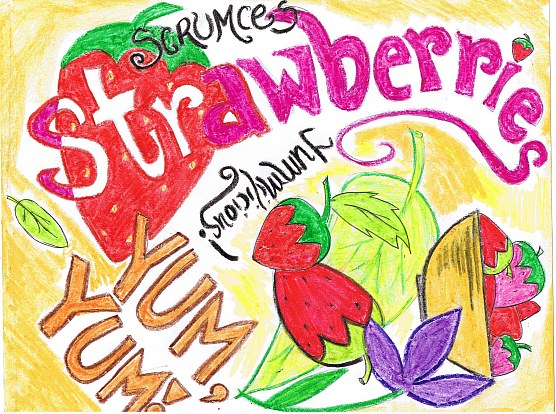 SCRUMCES
Strawberries
Yummylicious!
YUM
YUM!